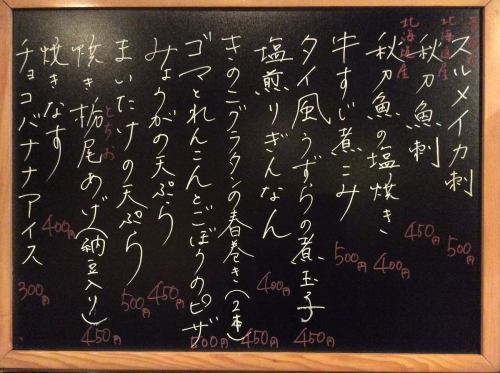 スルメイカ刺 500円
北海道産
秋刀魚刺 450円
北海道産
秋刀魚の塩焼き 400円
牛すじ煮こみ 500円
タイ風うずらの煮玉子 450円
塩煎りぎんなん 400円
きのこグラタンの春巻き(2本) 450円
ゴマとれんこんとごぼうのピザ 500円
みょうがの天ぷら 450円
まいたけの天ぷら 500円
とちお
焼き栃尾あげ(納豆入り) 450円
焼きなす 400円
チョコバナナアイス 300円